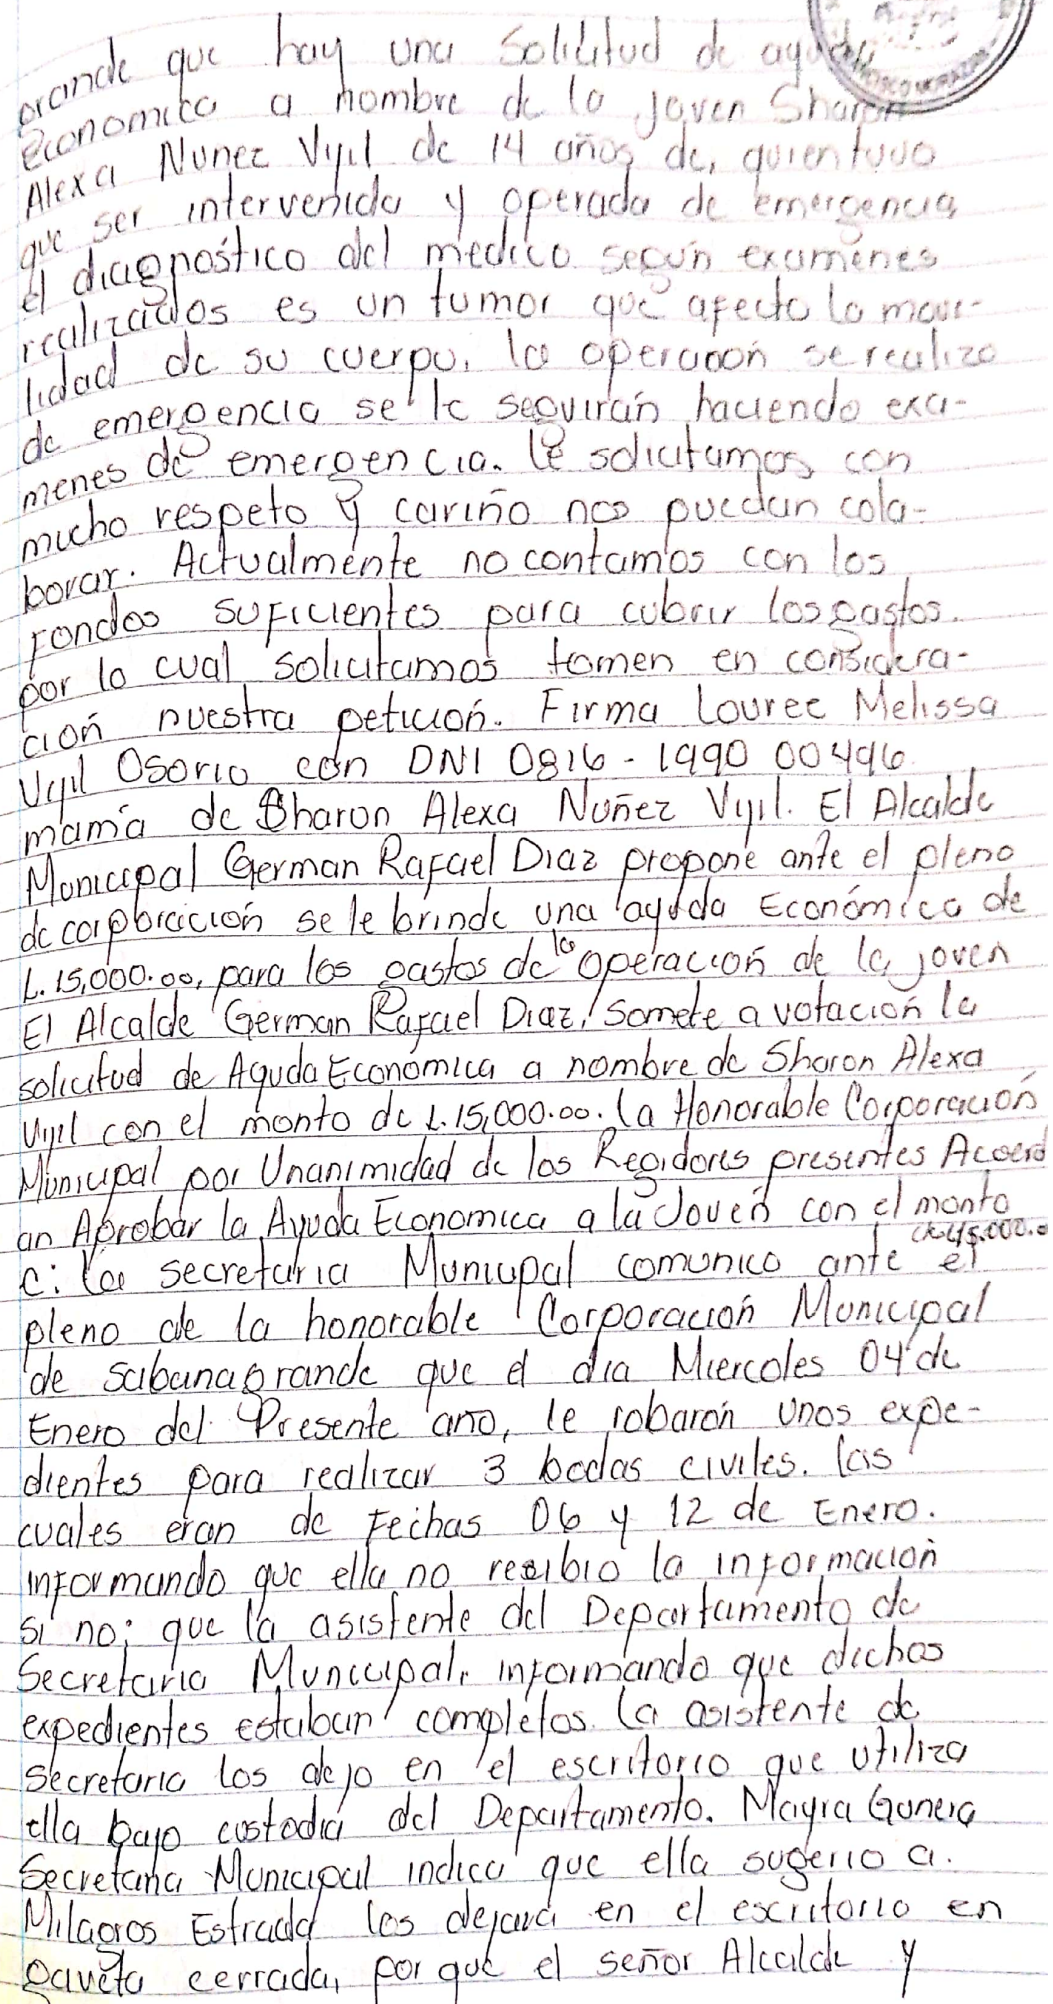 grande que hay una Solicitud de ayuda
Economica a nombre de la joven Sharon
Alexa Nunez Vijil de 14 años de, quien tuvo
que ser intervenida y operada de emergencia
el diagnostico del medico según examenes
realizados es un tumor que afecto la mayo-
lidad de su cuerpo. la operacion se realizo
de emergencia se le seguirán haciendo exa-
menes de emergencia. le solicitamos con
mucho respeto y cariño nos puedan cola-
borar. Actualmente no contamos con los
Fondos suficientes para cubrir los gastos.
por lo cual solicitamos tomen en considera-
ción nuestra petición. Firma Louree Melissa
Vijil Osorio con DNI 0816-1990 00496
mamá de Sharon Alexa Nuñez Vijil. El Alcalde
Municipal German Rafael Diaz propone ante el pleno
de corporación se le brinde una ayuda Económica de
L. 15,000.00, para los gastos de la operación de la joven
El Alcalde German Rafael Diaz, Somete a votación la
solicitud de Ayuda Económica a nombre de Sharon Alexa
Vijil con el monto de L. 15,000.00. la Honorable Corporación
Municipal por Unanimidad de los Regidores presentes Acuerd
an Aprobar la Ayuda Economica a la Joven con el monto
de L15,000.0
C: La secretaria Municipal comunico ante el
pleno de la honorable Corporación Municipal
de sabanagrande que el dia Miercoles 04 de
Enero del Presente año, le robaron unos expe-
dientes para realizar 3 bodas civiles. las
cuales eran de Fechas 06 y 12 de Enero.
informando que ella no resibio la informacion
si no; que la asistente del Departamento de
Secretaria Municipal, informando que dichos
expedientes estaban completos. la asistente de
secretaria los dejo en el escritorio que utiliza
ella bajo custodia del Departamento. Mayra Gunera
Secretaria Municipal indica que ella sugerio a.
Milagros Estrada los dejara en el escritorio en
gaveta cerrada, por que el señor Alcalde y